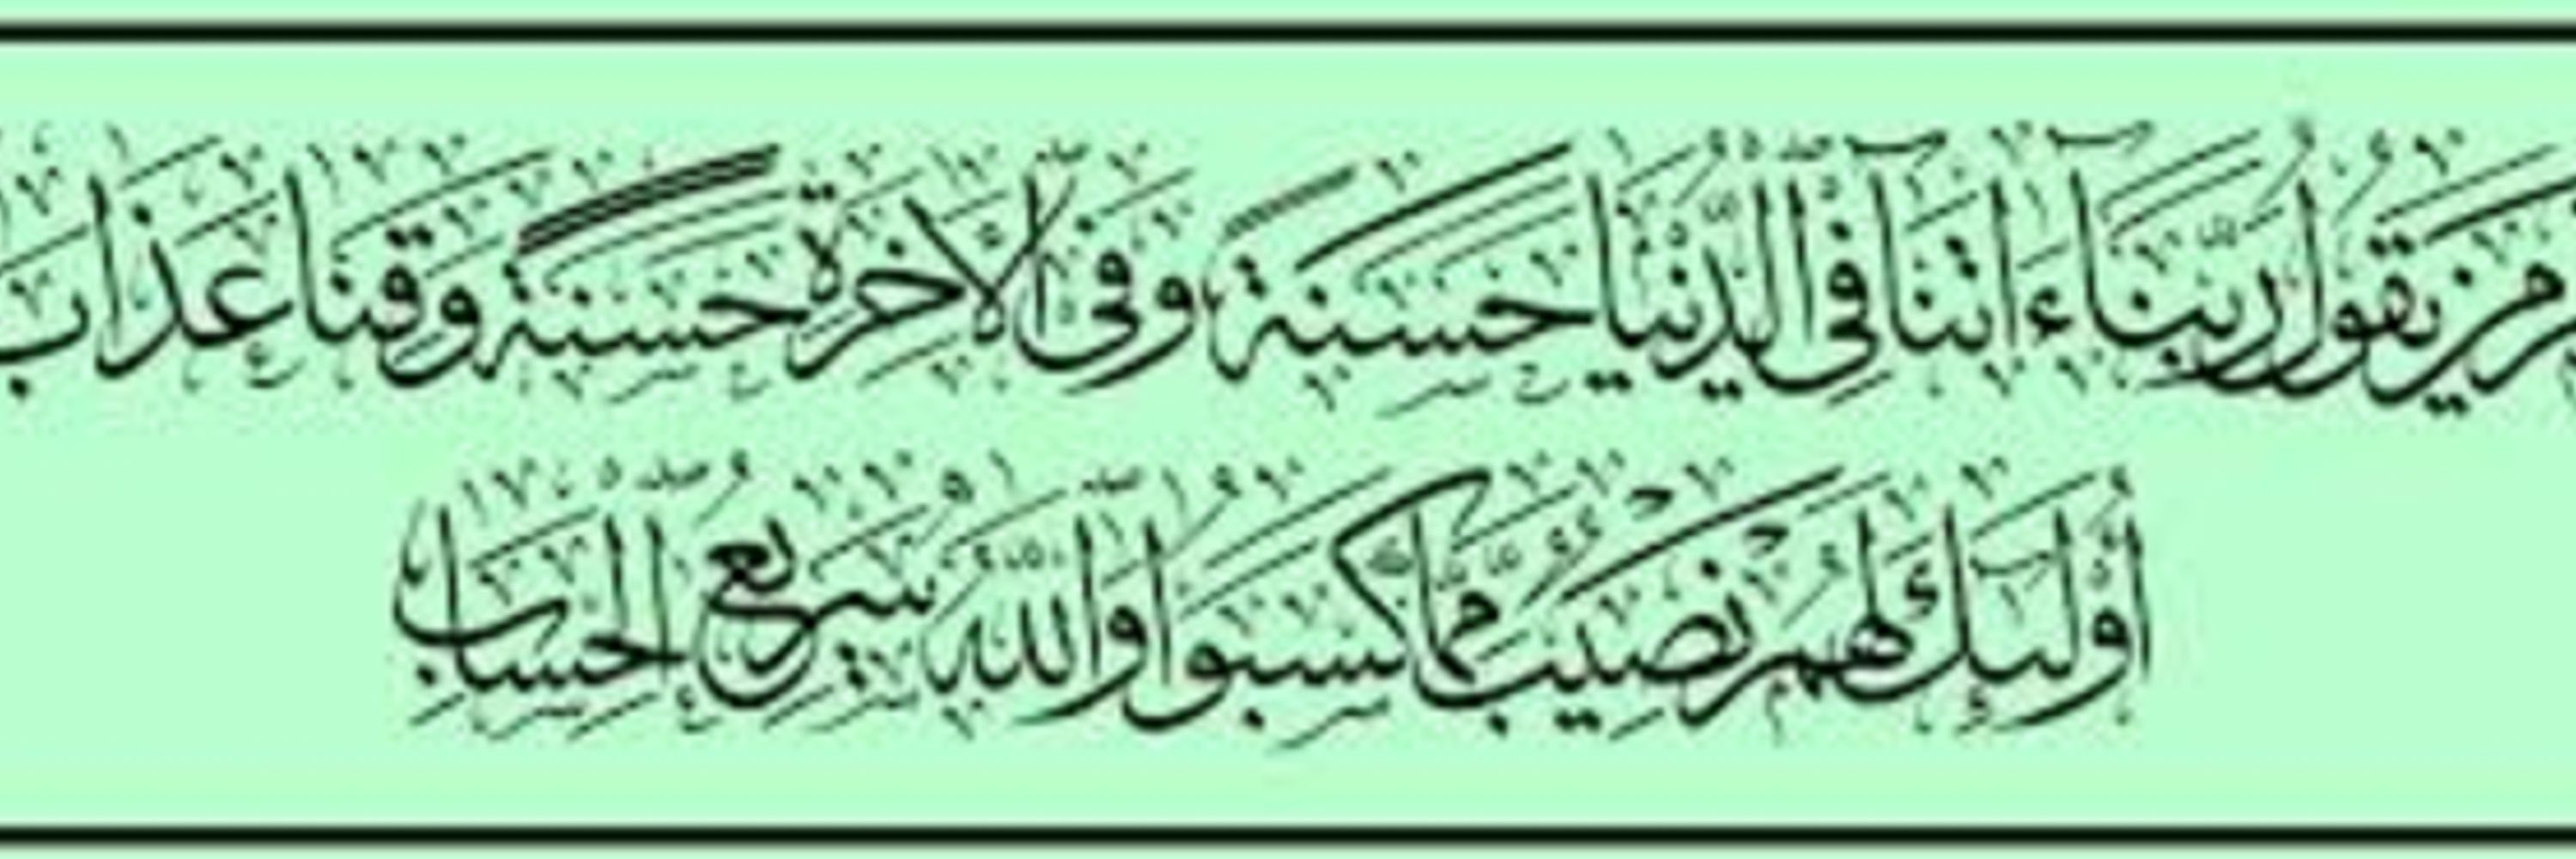 من يقول ربنا ءاتنا فى الدنيا حسنة وفى الاخرة حسنة وقنا عذاب
أولئك لهم نصيب مما كسبوا والله سريع الحساب